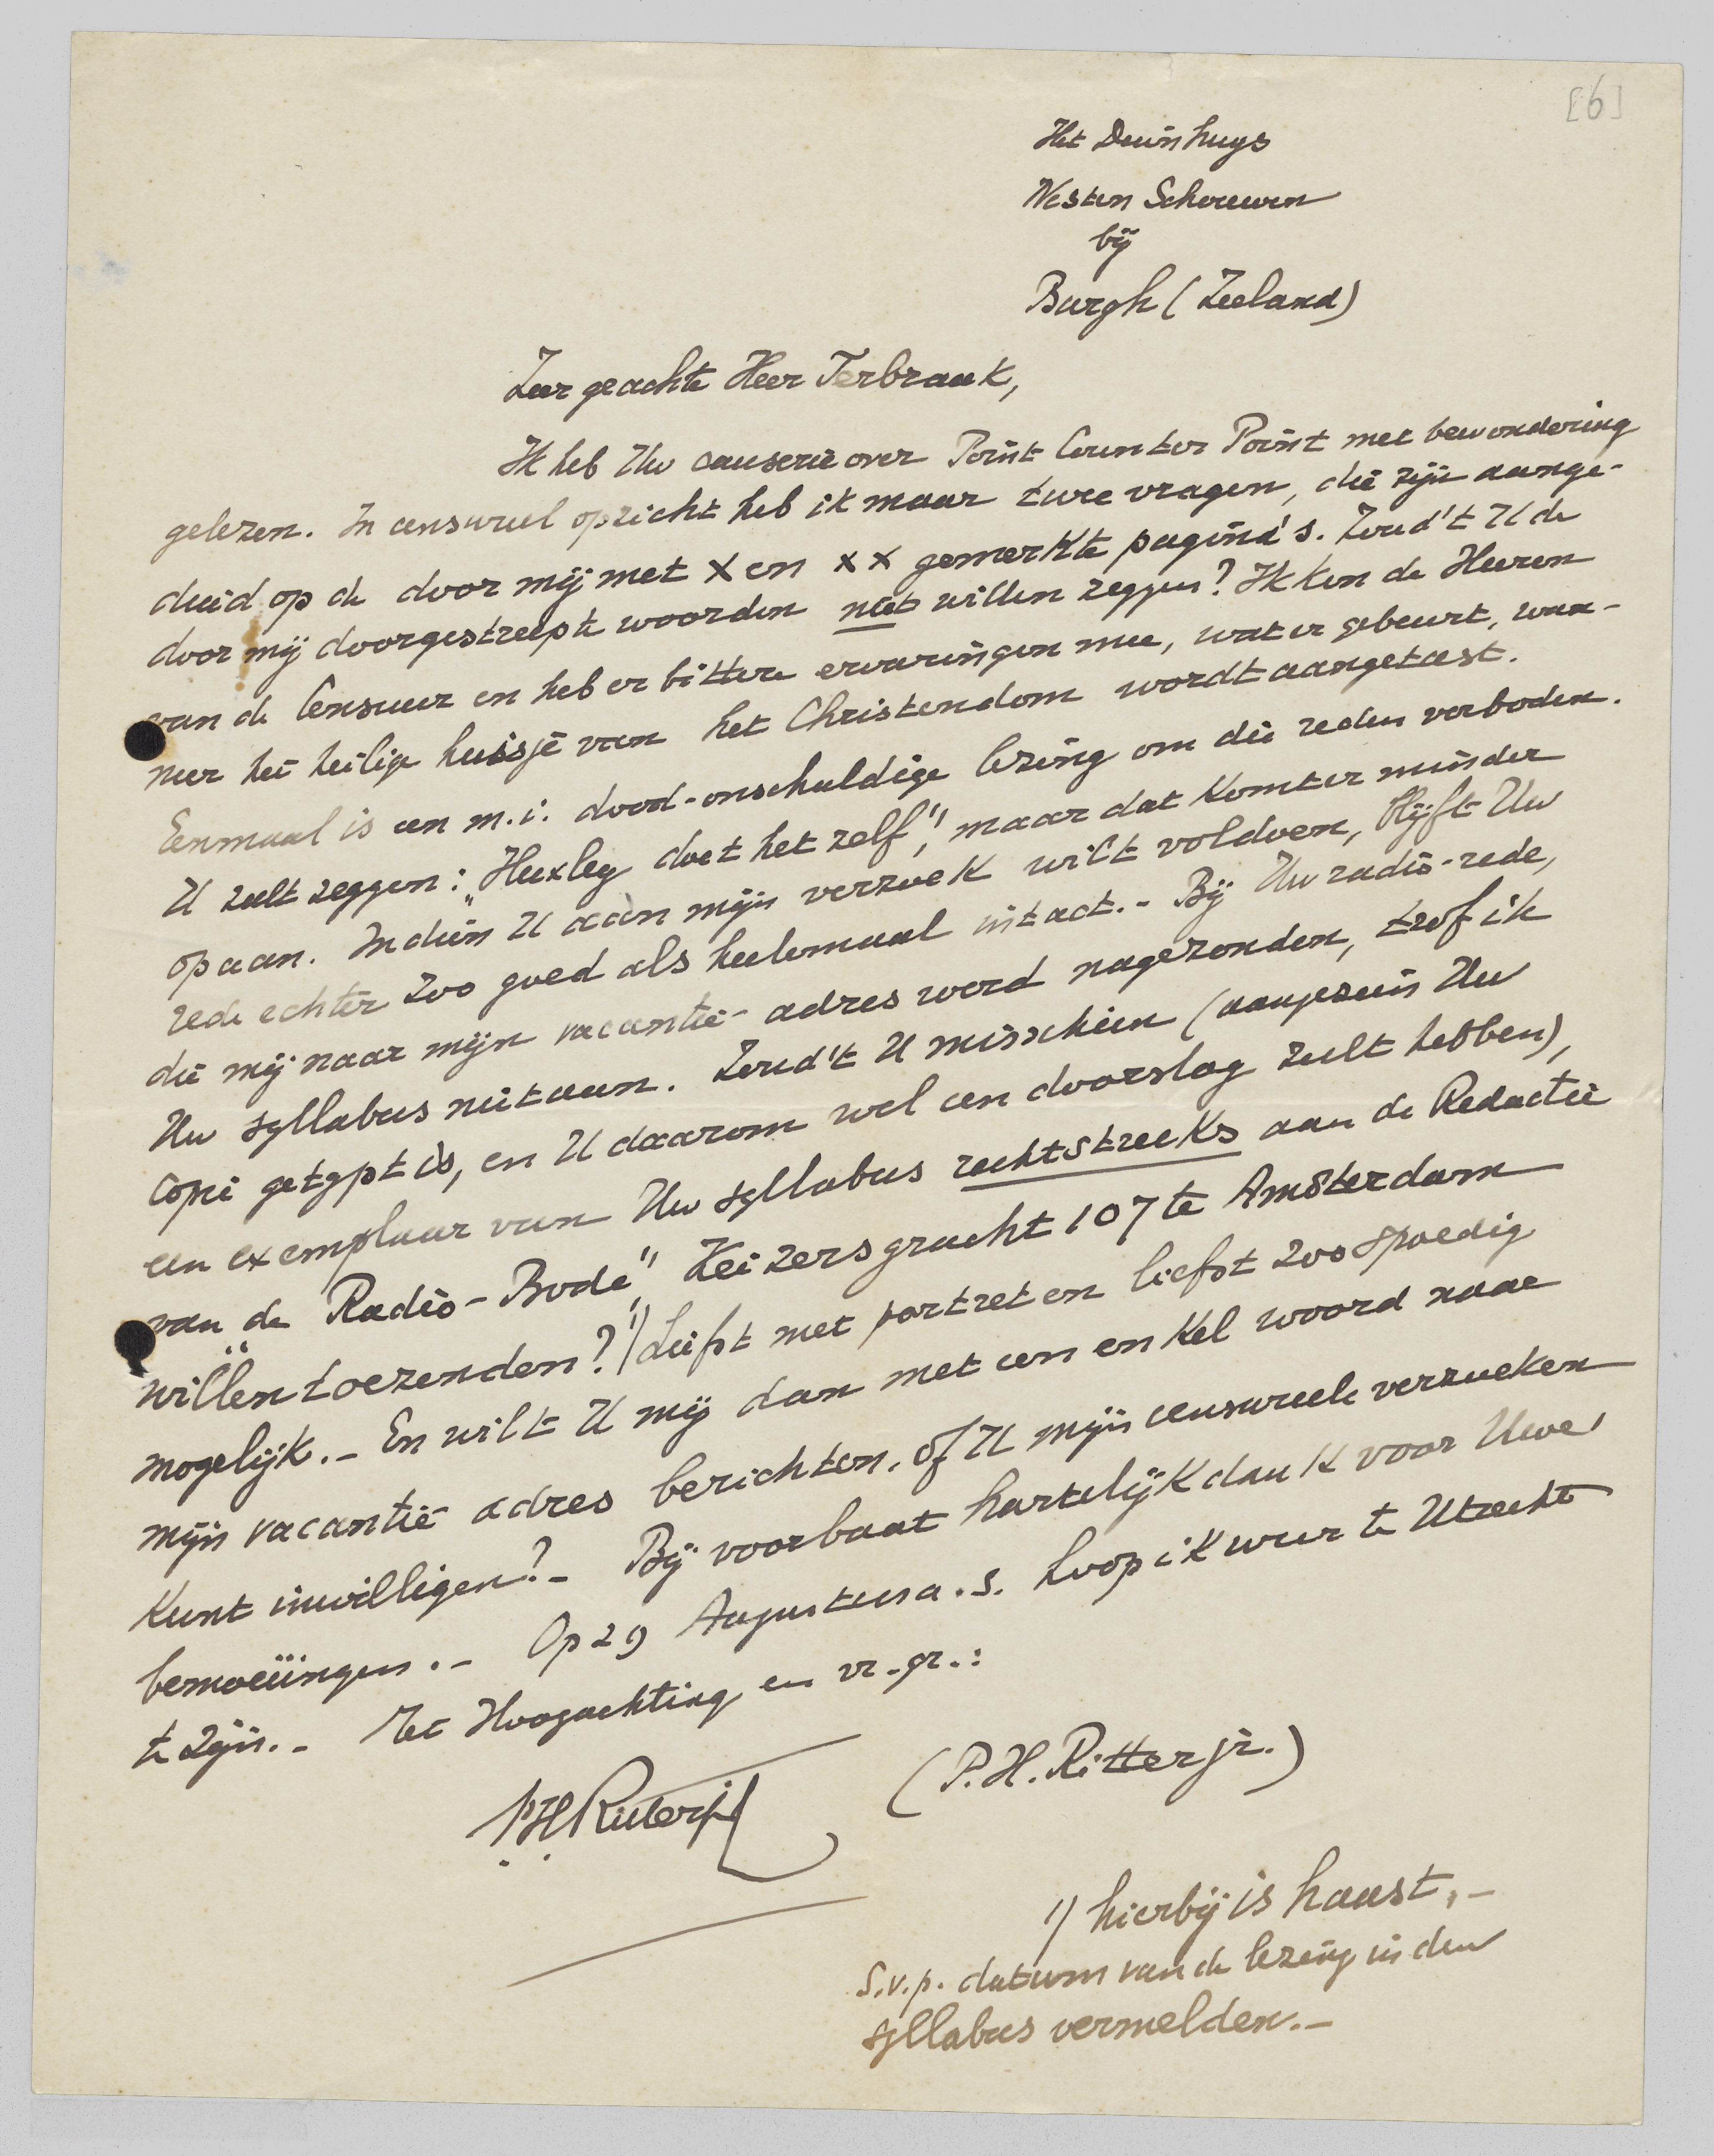 [6]
Het Duinhuys
Westen Schouwen
bij
Burgh (Zeeland)
Zeer geachte Heer Terbraak,
Ik heb Uw causerie over Point Counter Point met bewondering
gelezen. In censureel opzicht heb ik maar twee vragen, die zijn aange-
duid op de door mij met X en XX gemerkte pagina's. Zoud't U de
door mij doorgestreepte woorden niet willen zeggen? Ik ken de Heeren
van de Censuur en heb er bittere ervaringen mee, wat er gebeurt, wan-
neer het heilige huisje van het Christendom wordt aangetast.
Eenmaal is een m.i. dood-onschuldige lezing om die reden verboden.
U zult zeggen: „Huxley doet het zelf", maar dat komt er minder
op aan. Indien U aan mijn verzoek wilt voldoen, blijft Uw
rede echter zoo goed als heelemaal intact.- Bij Uw radio-rede,
die mij naar mijn vacantie-adres werd nagezonden, trof ik
Uw syllabus niet aan. Zoud't U misschien (aangezien Uw
copie getypt is, en U daarom wel een doorslag zult hebben),
een exemplaar van Uw syllabus rechtstreeks aan de Redactie
van de „Radio-Bode" Keizersgracht 107 te Amsterdam
willen toezenden? 1) Liefst met portret en liefst zoo spoedig
mogelijk.- En wilt U mij dan met een enkel woord naar
mijn vacantie adres berichten, of U mijn censureele verzoeken
kunt inwilligen?- Bij voorbaat hartelijk dank voor Uwe
bemoeiingen.- Op 29 Augustus a.s. hoop ik weer te Utrecht
te zijn.- Met Hoogachting en vr. gr.:
PHRitterjr
(P.H. Ritter jr.)
1) hierbij is haast.-
S.v.p. datum van de lezing in den
syllabus vermelden.-